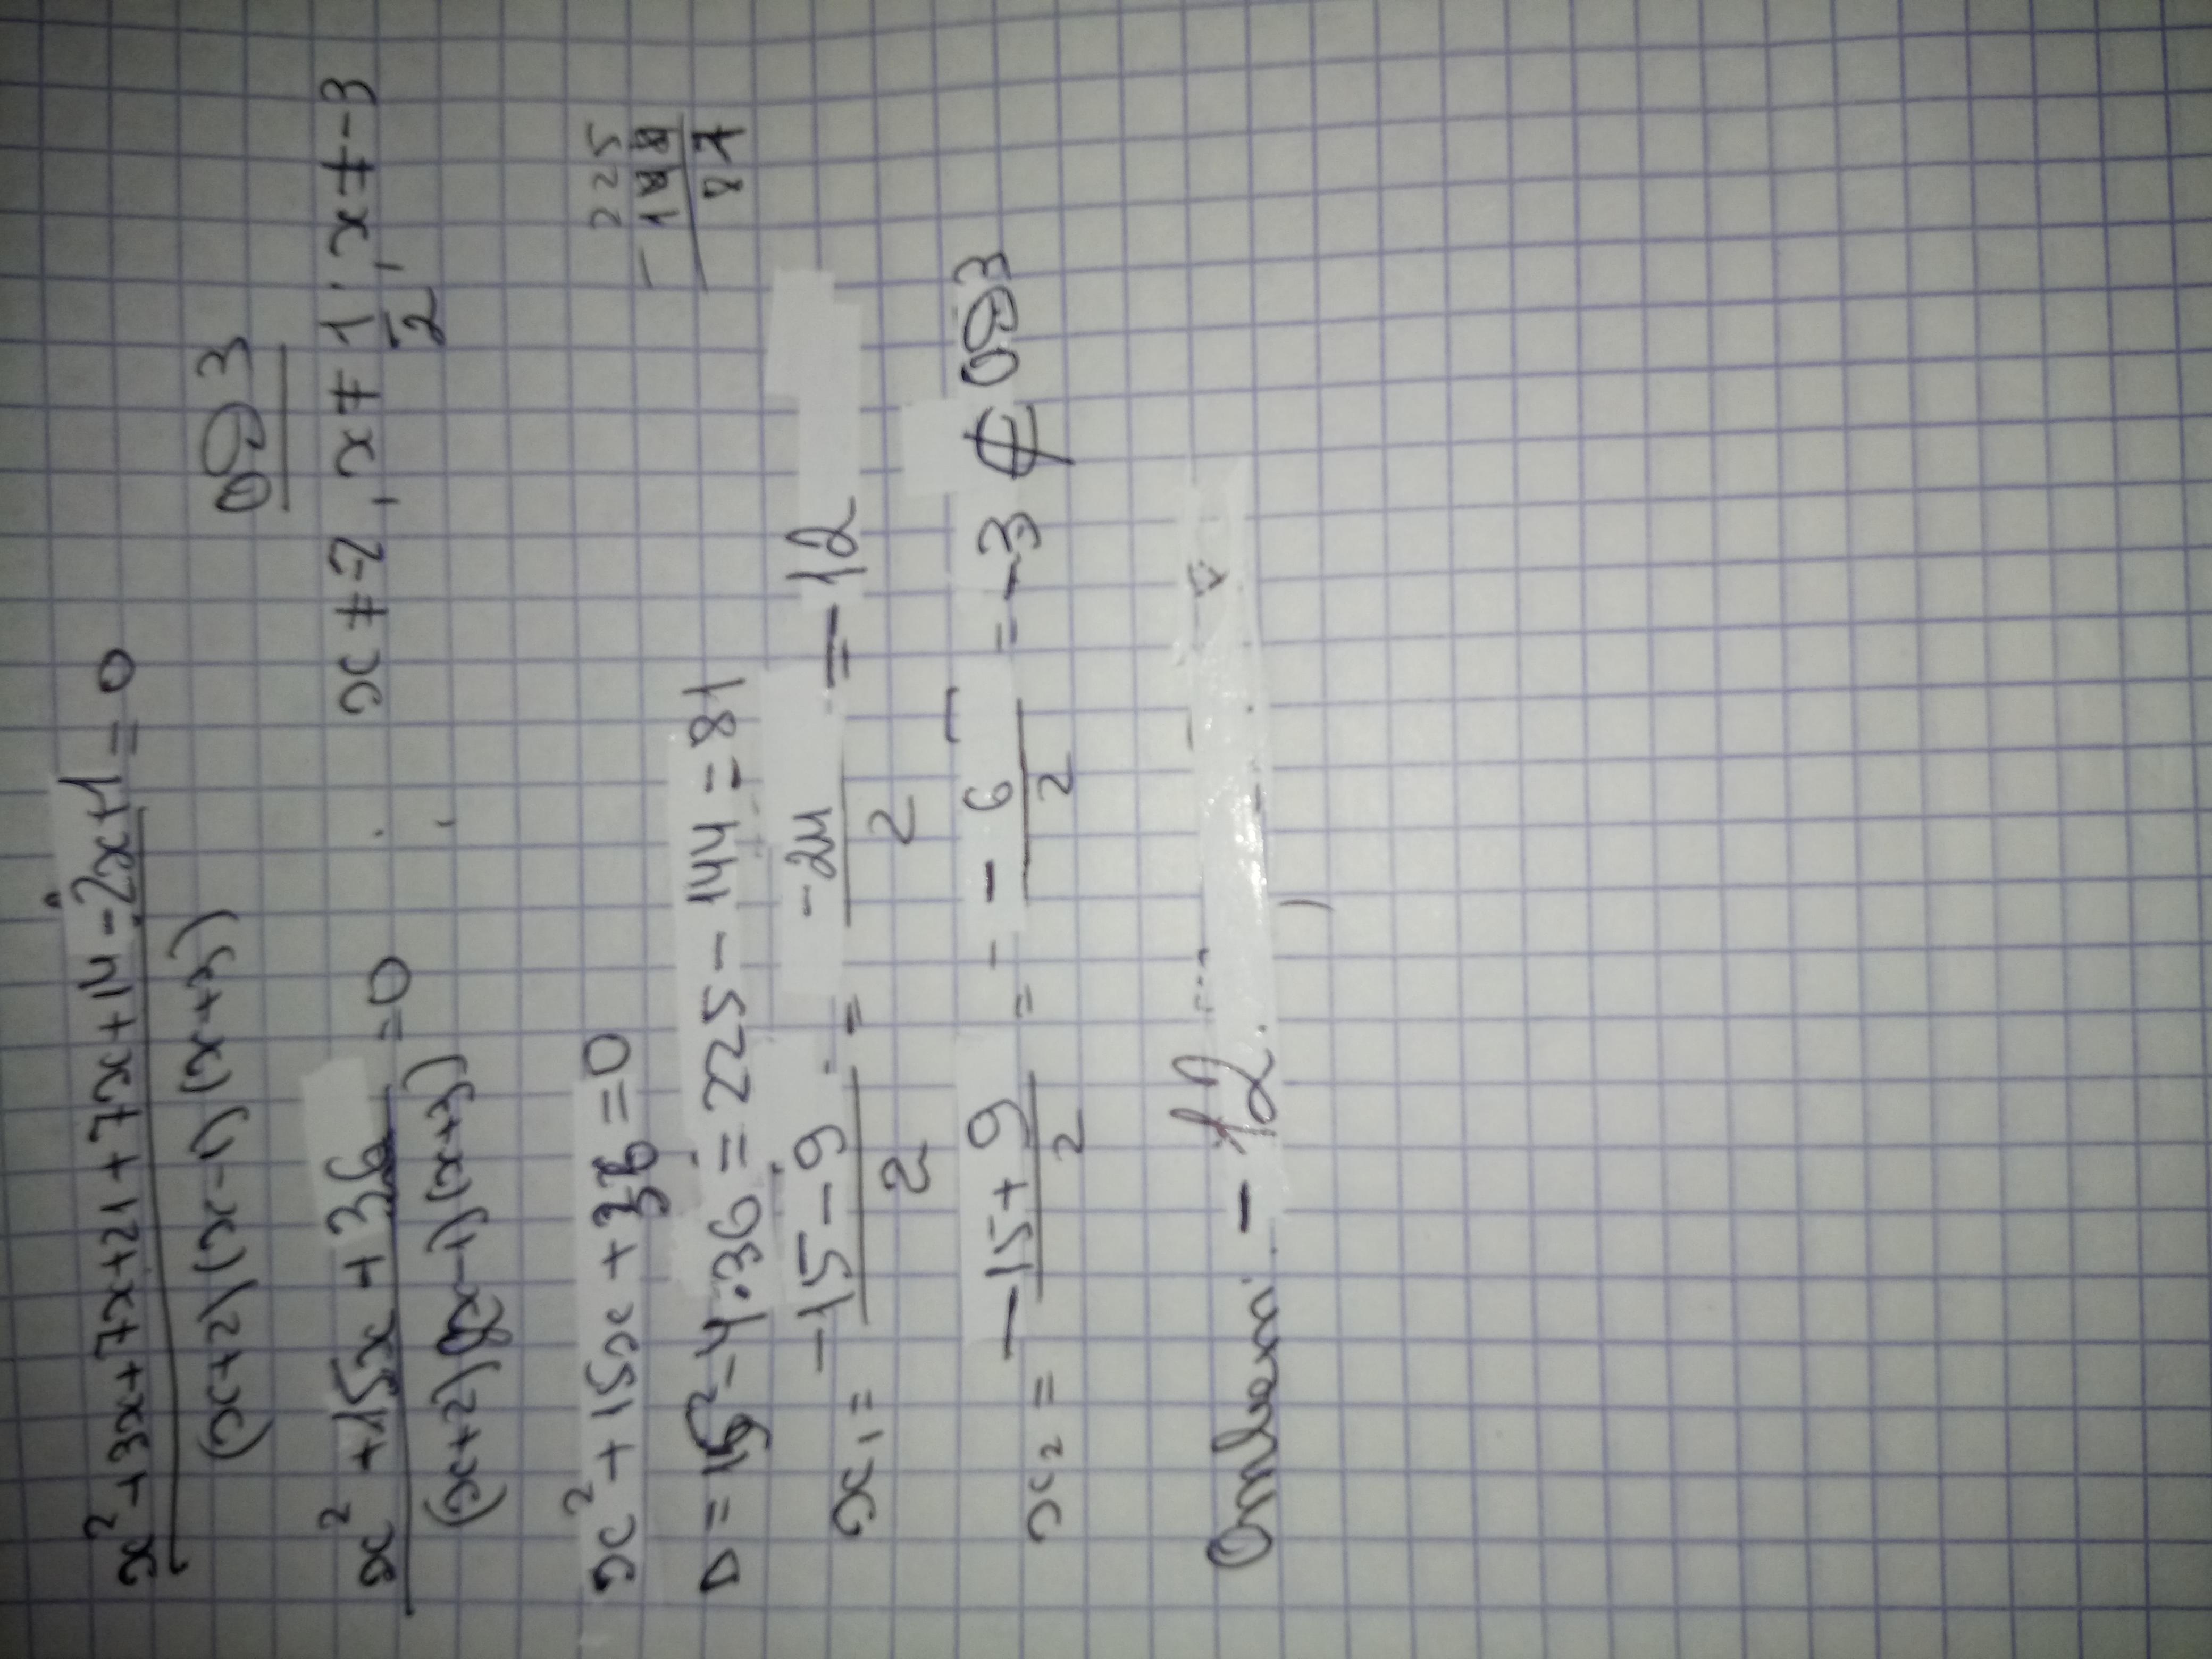 x² + 3x + 7x + 21 + 7x + 14 - 2x + 1 = 0
(x + 2)(x - 1)(x + 3)
ОДЗ
x² + 15x + 36 = 0
(x + 2)(x - 1)(x + 3)
x ≠ -2, x ≠ 1/2, x ≠ -3
x² + 15x + 36 = 0
D = 15² - 4·36 = 225 - 144 = 81
225
- 144
81
x₁ = -15 - 9 / 2 = -24 / 2 = -12
x₂ = -15 + 9 / 2 = - 6 / 2 = -3 ∉ ОДЗ
Ответ. -12.